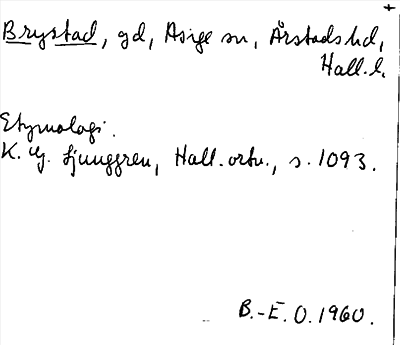 Brystad, gd, Asige sn, Årstads hd,
Hall. l.
Etymologi.
K. G. Ljunggren, Hall. ortn., s. 1093.
B.-E. O. 1960.